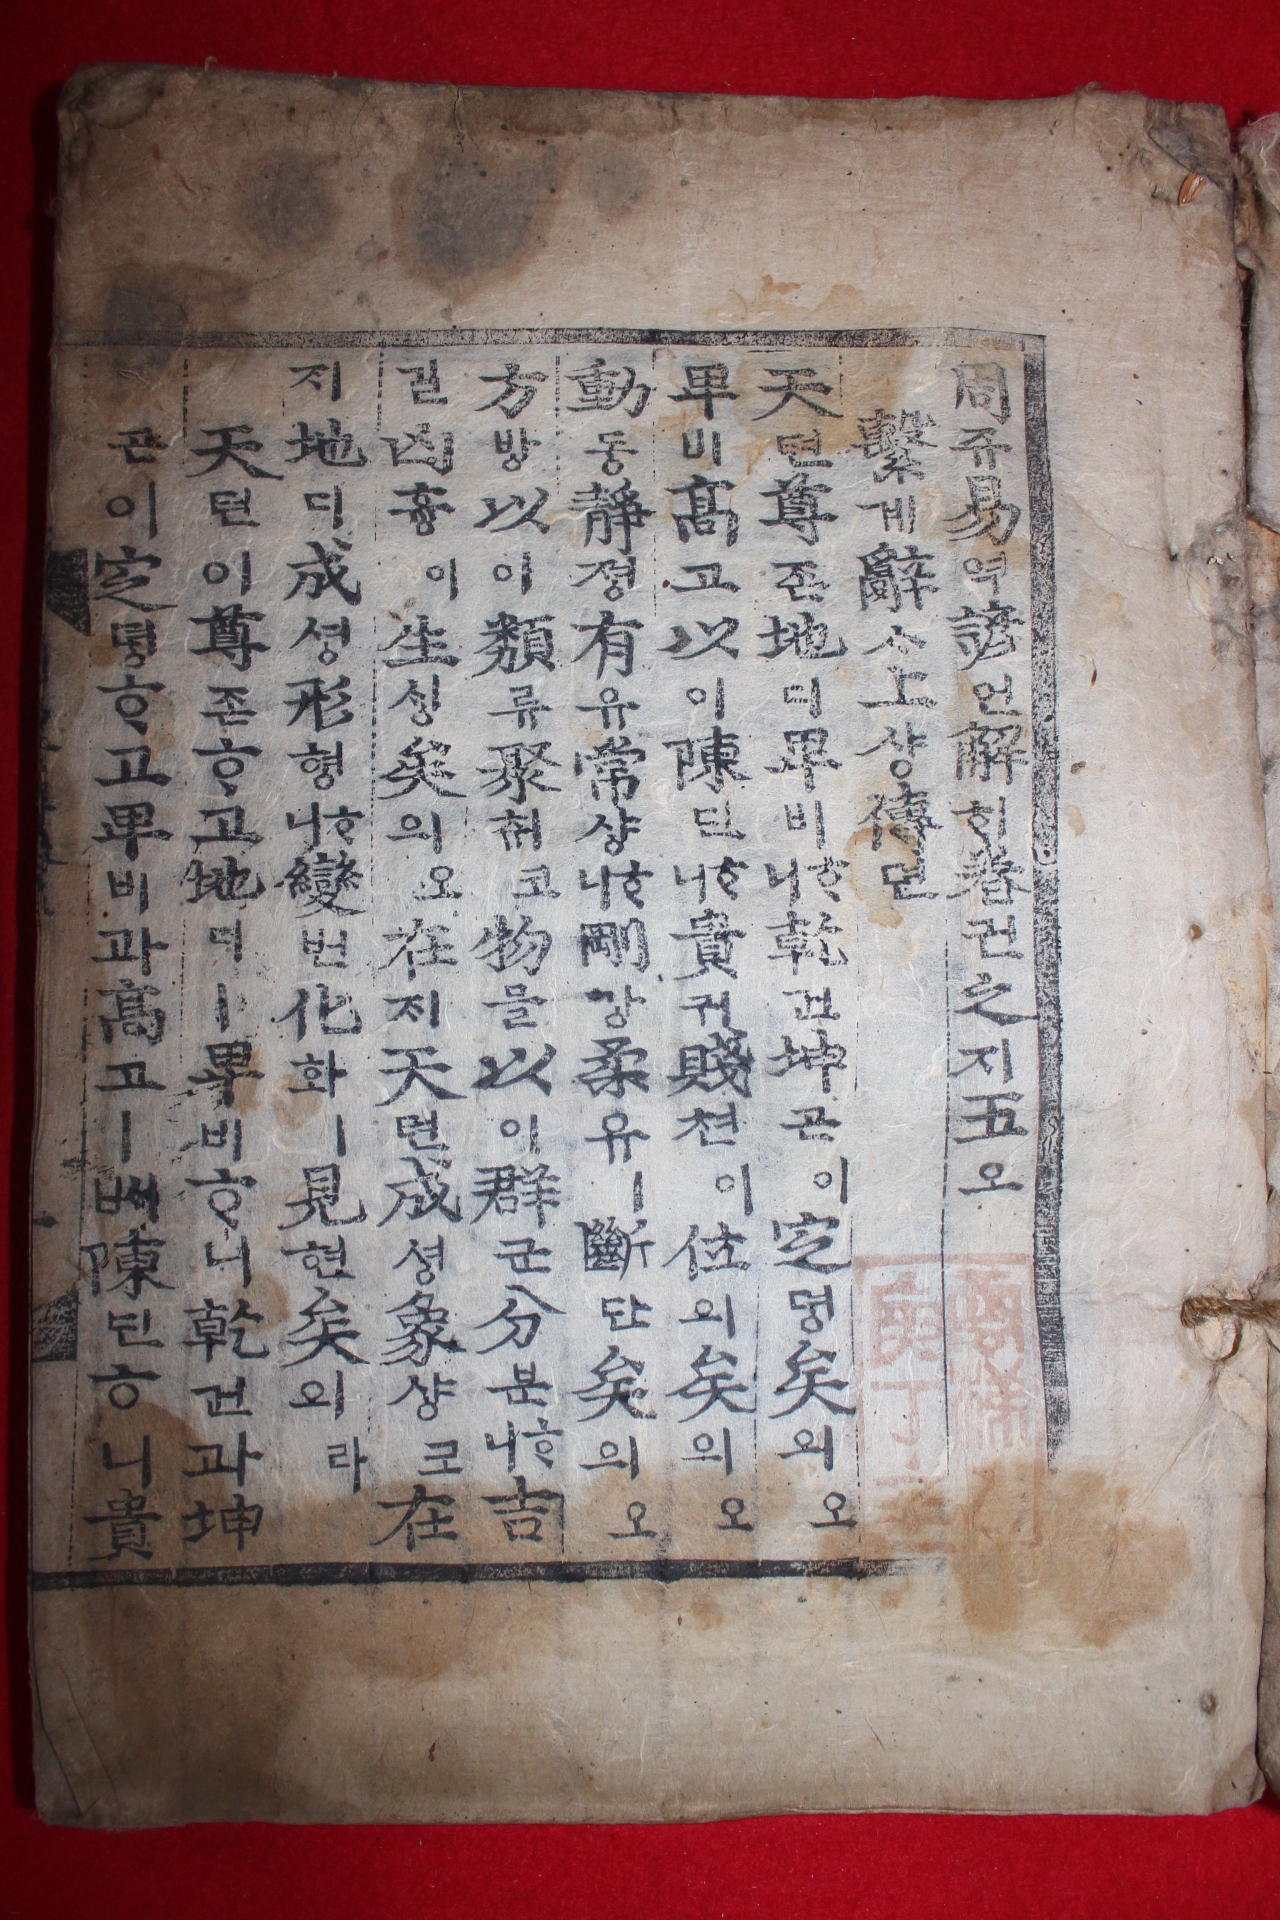 周쥬易역諺언解ᄒᆡ卷권之지五오
繫계辭ᄉᆞ上샹傳뎐
天텬尊존地디卑비ᄒᆞ니乾건坤곤이定뎡矣의오
卑비高고以이陳딘ᄒᆞ니貴귀賤쳔이位위矣의오
動동靜졍有유常샹ᄒᆞ니剛강柔유ㅣ斷단矣의오
方방以이類류聚췌코物믈以이群군分분ᄒᆞ니吉
길凶흉이生ᄉᆡᆼ矣의오在ᄌᆡ天텬成셩象샹코在
ᄌᆡ地디成셩形형ᄒᆞ니變변化화ㅣ見현矣의라
天텬이尊존ᄒᆞ고地디ㅣ卑비ᄒᆞ니乾건과坤
곤이定뎡ᄒᆞ고卑비과高고ㅣ써陳딘ᄒᆞ니貴